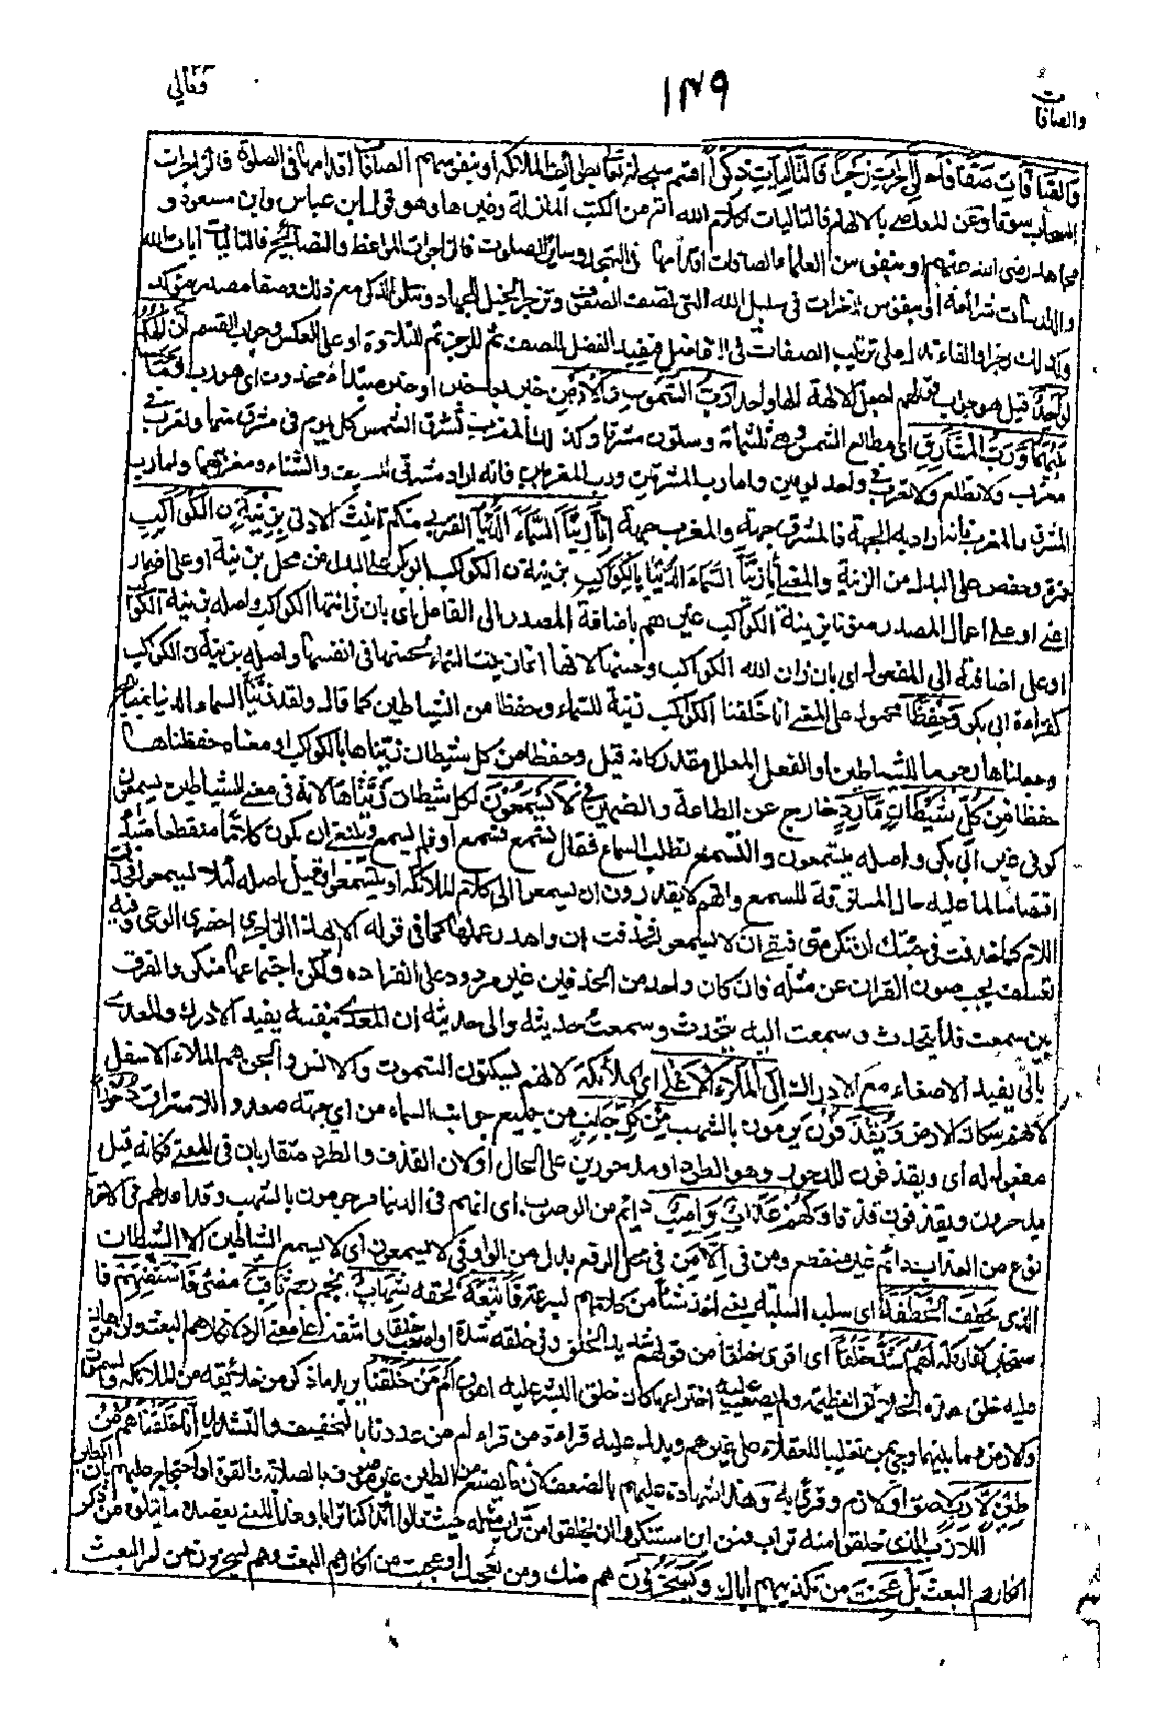 وقالي
١٣٩
والصافات
والصافات صفا فالزاجرات زجرا فالتاليات ذكرا اقسم سبحانه بطوائف الملائكة او بنفوسهم الصافات اقدامها في الصلوة فالزاجرات
السحاب سوقا وعن المعاصي بالالهام فالتاليات لكلام الله من الكتب المنزلة وغيرها وهو قول ابن عباس وابن مسعود و
مجاهد رضي الله عنهم او بنفوس العلماء الصافات اقدامها في التهجد وسائر الصلوات فالزاجرات بالمواعظ والنصائح فالتاليات ايات الله
والدارسات شرائعه او بنفوس الغزاة في سبيل الله التي تصف الصفوف وتزجر الخيل للجهاد وتتلو الذكر مع ذلك وصفا مصدر مؤكد
وكذلك زجرا والفاء تدل على ترتيب الصفات في التفاضل فيفيد الفضل للصف ثم للزجر ثم للتلاوة او على العكس وجواب القسم ان الهكم
لواحد قيل هو جواب قولهم اجعل الالهة الها واحدا رب السموات والارض خبر بعد خبر او خبر مبتداء محذوف اي هو رب وما
بينهما ورب المشارق اي مطالع الشمس وهي ثلثمائة وستون مشرقا وكذلك المغارب تشرق الشمس كل يوم في مشرق منها وتغرب في
مغرب ولا تطلع ولا تغرب في واحد يومين واما رب المشرقين ورب المغربين فانه اراد مشرقي الصيف والشتاء ومغربيهما واما رب
المشرق والمغرب فانه اراد به الجهة فالمشرق جهة والمغرب جهة انا زينا السماء الدنيا القربى منكم تانيث الادنى بزينة ن الكواكب
حمزة وحفص على البدل من الزينة والمعنى انا زينا السماء الدنيا بالكواكب بزينة ن الكواكب ابو بكر على البدل من محل بزينة او على اضمار
اعني او على اعمال المصدر منونا بزينة الكواكب غيرهم باضافة المصدر الى الفاعل اي بان زانتها الكواكب واصله بزينة الكواكب
او على اضافته الى المفعول اي بان زان الله الكواكب وحسنها لانها انما زينت السماء لحسنها في انفسها واصله بزينة ن الكواكب
كقراءة ابي بكر وحفظا محمول على المعنى انا خلقنا الكواكب زينة للسماء وحفظا من الشياطين كما قال ولقد زينا السماء الدنيا بمصابيح
وجعلناها رجوما للشياطين او الفعل المعلل مقدر كانه قيل وحفظا من كل شيطان زيناها بالكواكب او معناه حفظناها
حفظا من كل شيطان مارد خارج عن الطاعة والضمير في لا يسمعون لكل شيطان لانه في معنى الشياطين يسمعون
كوفي غير ابي بكر واصله يتسمعون والتسمع تطلب السماع فقال تسمع فسمع او فلم يسمع وينبغي ان يكون كلاما منقطعا مبتدأ
اقتصاصا لما عليه حال المسترقة للسمع وانهم لا يقدرون ان يسمعوا الى كلام الملائكة او يتسمعوا وقيل اصله لئلا يسمعوا فحذفت
اللام كما حذفت في جئتك ان تكرمني فبقي ان لا يسمعوا فحذفت ان واهدر عملها كما في قوله الا ايهذا الزاجري احضر الوغى وفيه
تعسف يجب صون القران عن مثله فان كان واحد من الحذفين غير مردود على انفراده ولكن اجتماعهما منكر والفرق
بين سمعت فلانا يتحدث وسمعت اليه يتحدث وسمعت حديثه والى حديثه ان المعدى بنفسه يفيد الادراك والمعدى
بالى يفيد الاصغاء مع الادراك الى الملاء الاعلى اي الملائكة لانهم يسكنون السموات والانس والجن هم الملاء الاسفل
لانهم سكان الارض ويقذفون يرمون بالشهب من كل جانب من جميع جوانب السماء من اي جهة صعدوا للاستراق دحورا
مفعول له اي ويقذفون للدحور وهو الطرد او مدحورين على الحال او لان القذف والطرد متقاربان في المعنى فكانه قيل
يدحرون ويقذفون قذفا ولهم عذاب واصب دائم من الوصوب اي انهم في الدنيا مرجومون بالشهب وقد اعد لهم في الاخرة
نوع من العذاب دائم غير منقطع ومن في الا من في محل الرفع بدل من الواو في لا يسمعون اي لا يسمع الشياطين الا الشيطان
الذي خطف الخطفة اي سلب السلبة يعني اخذ شيئا من كلامهم بسرعة فاتبعه لحقه شهاب نجم رجم ثاقب مضيء فاستفتهم فا
ستخبر كفار مكة اهم اشد خلقا اي اقوى خلقا من قولهم شديد الخلق وفي خلقه شدة او اصعب خلقا واشقه على معنى الرد لانكارهم البعث وان من هان
عليه خلق هذه الخلائق العظيمة ولم يصعب عليه اختراعها كان خلق البشر عليه اهون ام من خلقنا يريد ما ذكر من خلائقه من الملائكة والسموات
والارض وما بينهما وجيء بمن تغليبا للعقلاء على غيرهم ويدل عليه قراءة من قراء ام من عددنا بالتخفيف والتشديد انا خلقناهم من
طين لازب لاصق او لازم وقرئ به وهذا شهادة عليهم بالضعف لان ما يصنع من الطين غير موصوف بالصلابة والقوة او احتجاج عليهم بان الطين
اللازب الذي خلقوا منه تراب فمن اين استنكروا ان يخلقوا من تراب مثله حيث قالوا ائذا كنا ترابا وهذا المعنى يعضده ما يتلوه من ذكر
انكارهم البعث بل عجبت من تكذيبهم اياك ويسخرون هم منك ومن تعجبك او عجبت من انكارهم البعث وهم يسخرون من امر البعث